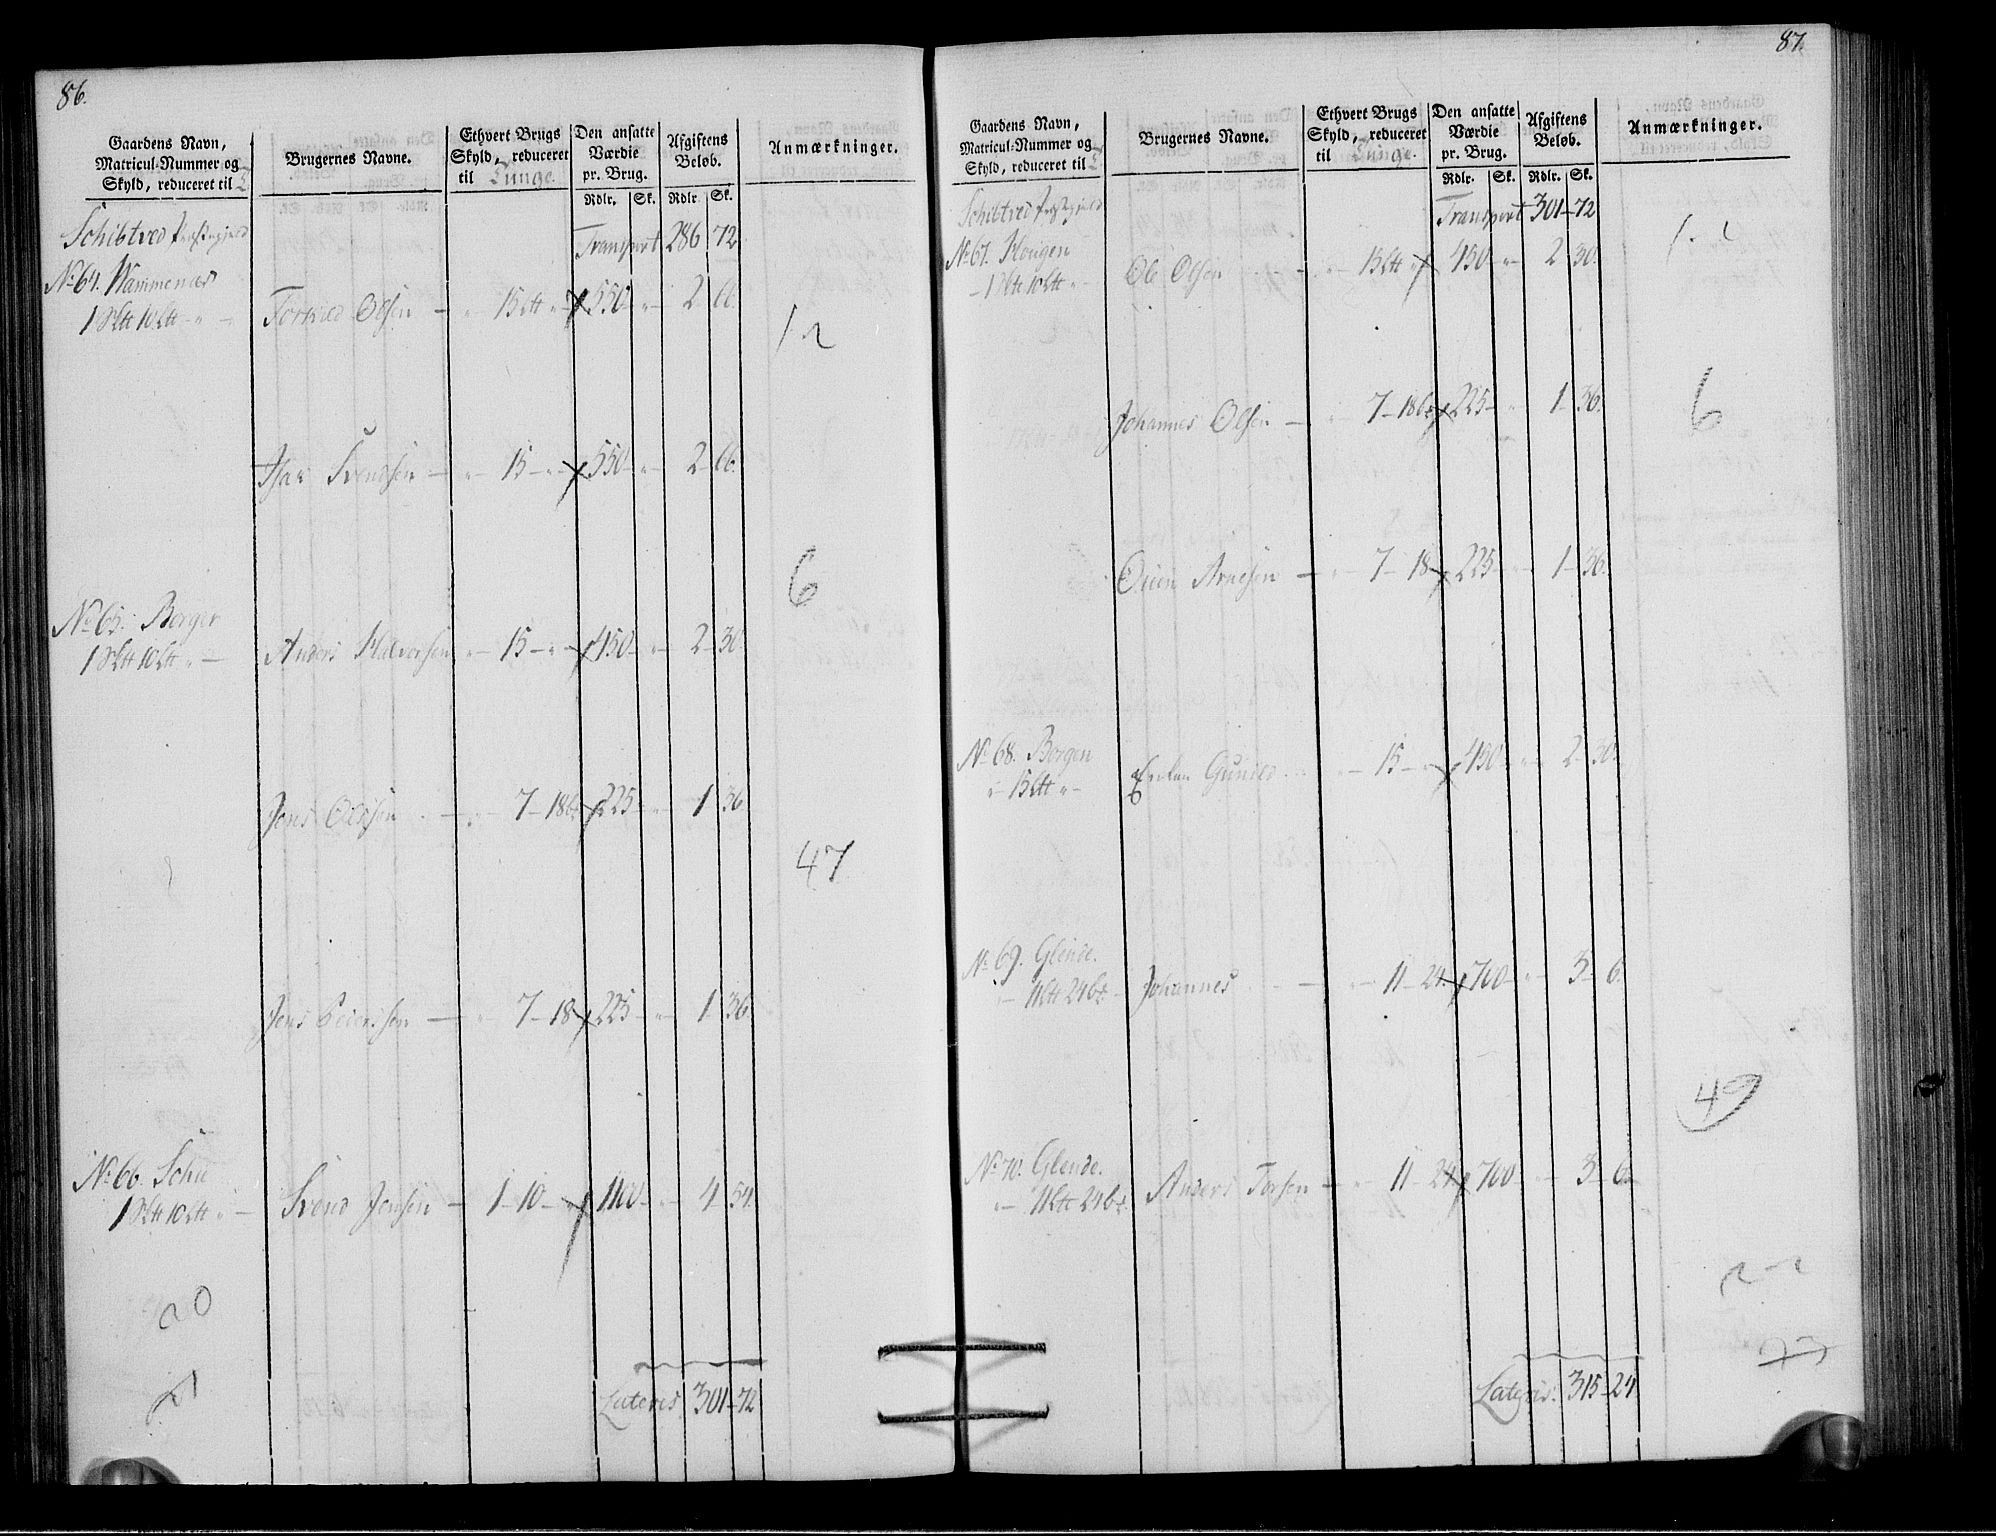 86.
Gaardens Navn, Matricul-Nummer og Skyld, reduceret til
Brugernes Navne.
Ethvert Brugs Skyld, reduceret til Tunge.
Den ansatte Værdie pr. Brug.
Afgiftens Beløb.
Anmærkninger.
Rdlr. Sk. Rdlr. Sk.
Schibtved Præstegjeld Transport 286 72
No 64. Wammenæs
1 Pd 10 Lb Torkild Olsen 15 Lb 550 2 66.
1 2
Svendsen 15 550 2 66.
6
No 65. Berger
1 Pd 10 Lb Anders Halvorsen 15 450 2 30
Jens Olsen 7 18 225 1 36
47
Jens Peiersen 7 18 225 1 36
No 66. Schie
1 Pd 10 Lb Svend Jensen 1 10 1100 4 54.
20
21
Lateris 301 72
87.
Gaardens Navn, Matricul-Nummer og Skyld, reduceret til
Brugernes Navne.
Ethvert Brugs Skyld, reduceret til Tunge.
Den ansatte Værdie pr. Brug.
Afgiftens Beløb.
Anmærkninger.
Rdlr. Sk. Rdlr. Sk.
Schibtved Præstegjeld Transport 301 72
No 67. Hougen
1 Pd 10 Lb Ole Olsen 15 Lb 450 2 30.
Johannes Olsen 7 18 225 1 36.
6
Arnesen 7 18 225 1 36.
No 68. Borgen
15 Lb Gunild 15 450 2 30.
No 69. Glende.
11 Lb 24 Johannes 11 24 700 3 6.
49
No 70. Glende.
11 Lb 24 Anders Torsen 11 24 700 3 6
Lateris: 315 24